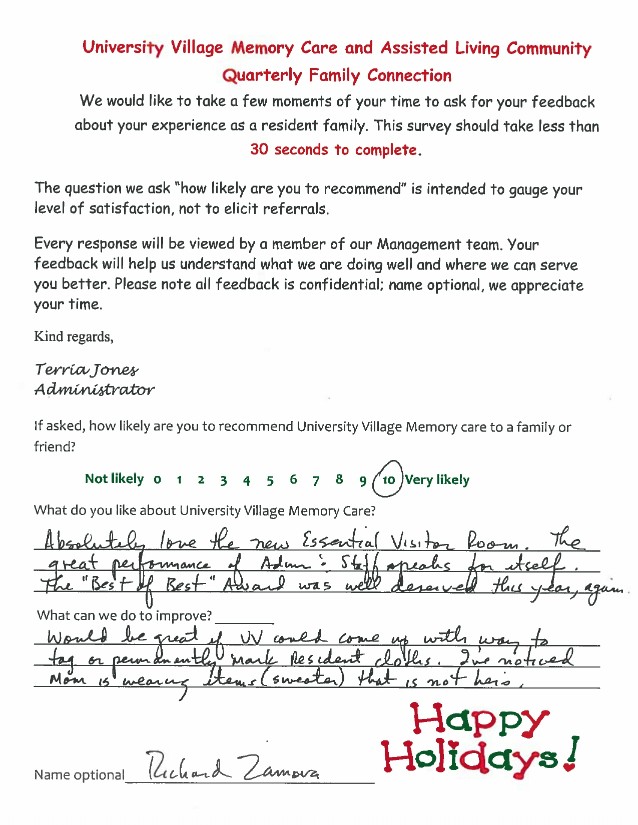 University Village Memory Care and Assisted Living Community
Quarterly Family Connection
We would like to take a few moments of your time to ask for your feedback
about your experience as a resident family. This survey should take less than
30 seconds to complete.
The question we ask "how likely are you to recommend" is intended to gauge your
level of satisfaction, not to elicit referrals.
Every response will be viewed by a member of our Management team. Your
feedback will help us understand what we are doing well and where we can serve
you better. Please note all feedback is confidential; name optional, we appreciate
your time.
Kind regards,
Terria Jones
Administrator
If asked, how likely are you to recommend University Village Memory care to a family or
friend?
Not likely 0 1 2 3 4 5 6 7 8 9 10 Very likely
What do you like about University Village Memory Care?
Absolutely love the new Essential Visitor Room. The
great performance of Admn & Staff speaks for itself.
The "Best of Best" Award was well deserved this year, again.
What can we do to improve?
Would be great if UV could come up with way to
tag or permanently mark Resident cloths. I've noticed
Mom is wearing items (sweater) that is not hers.
Happy
Holidays!
Name optional Richard Zamora